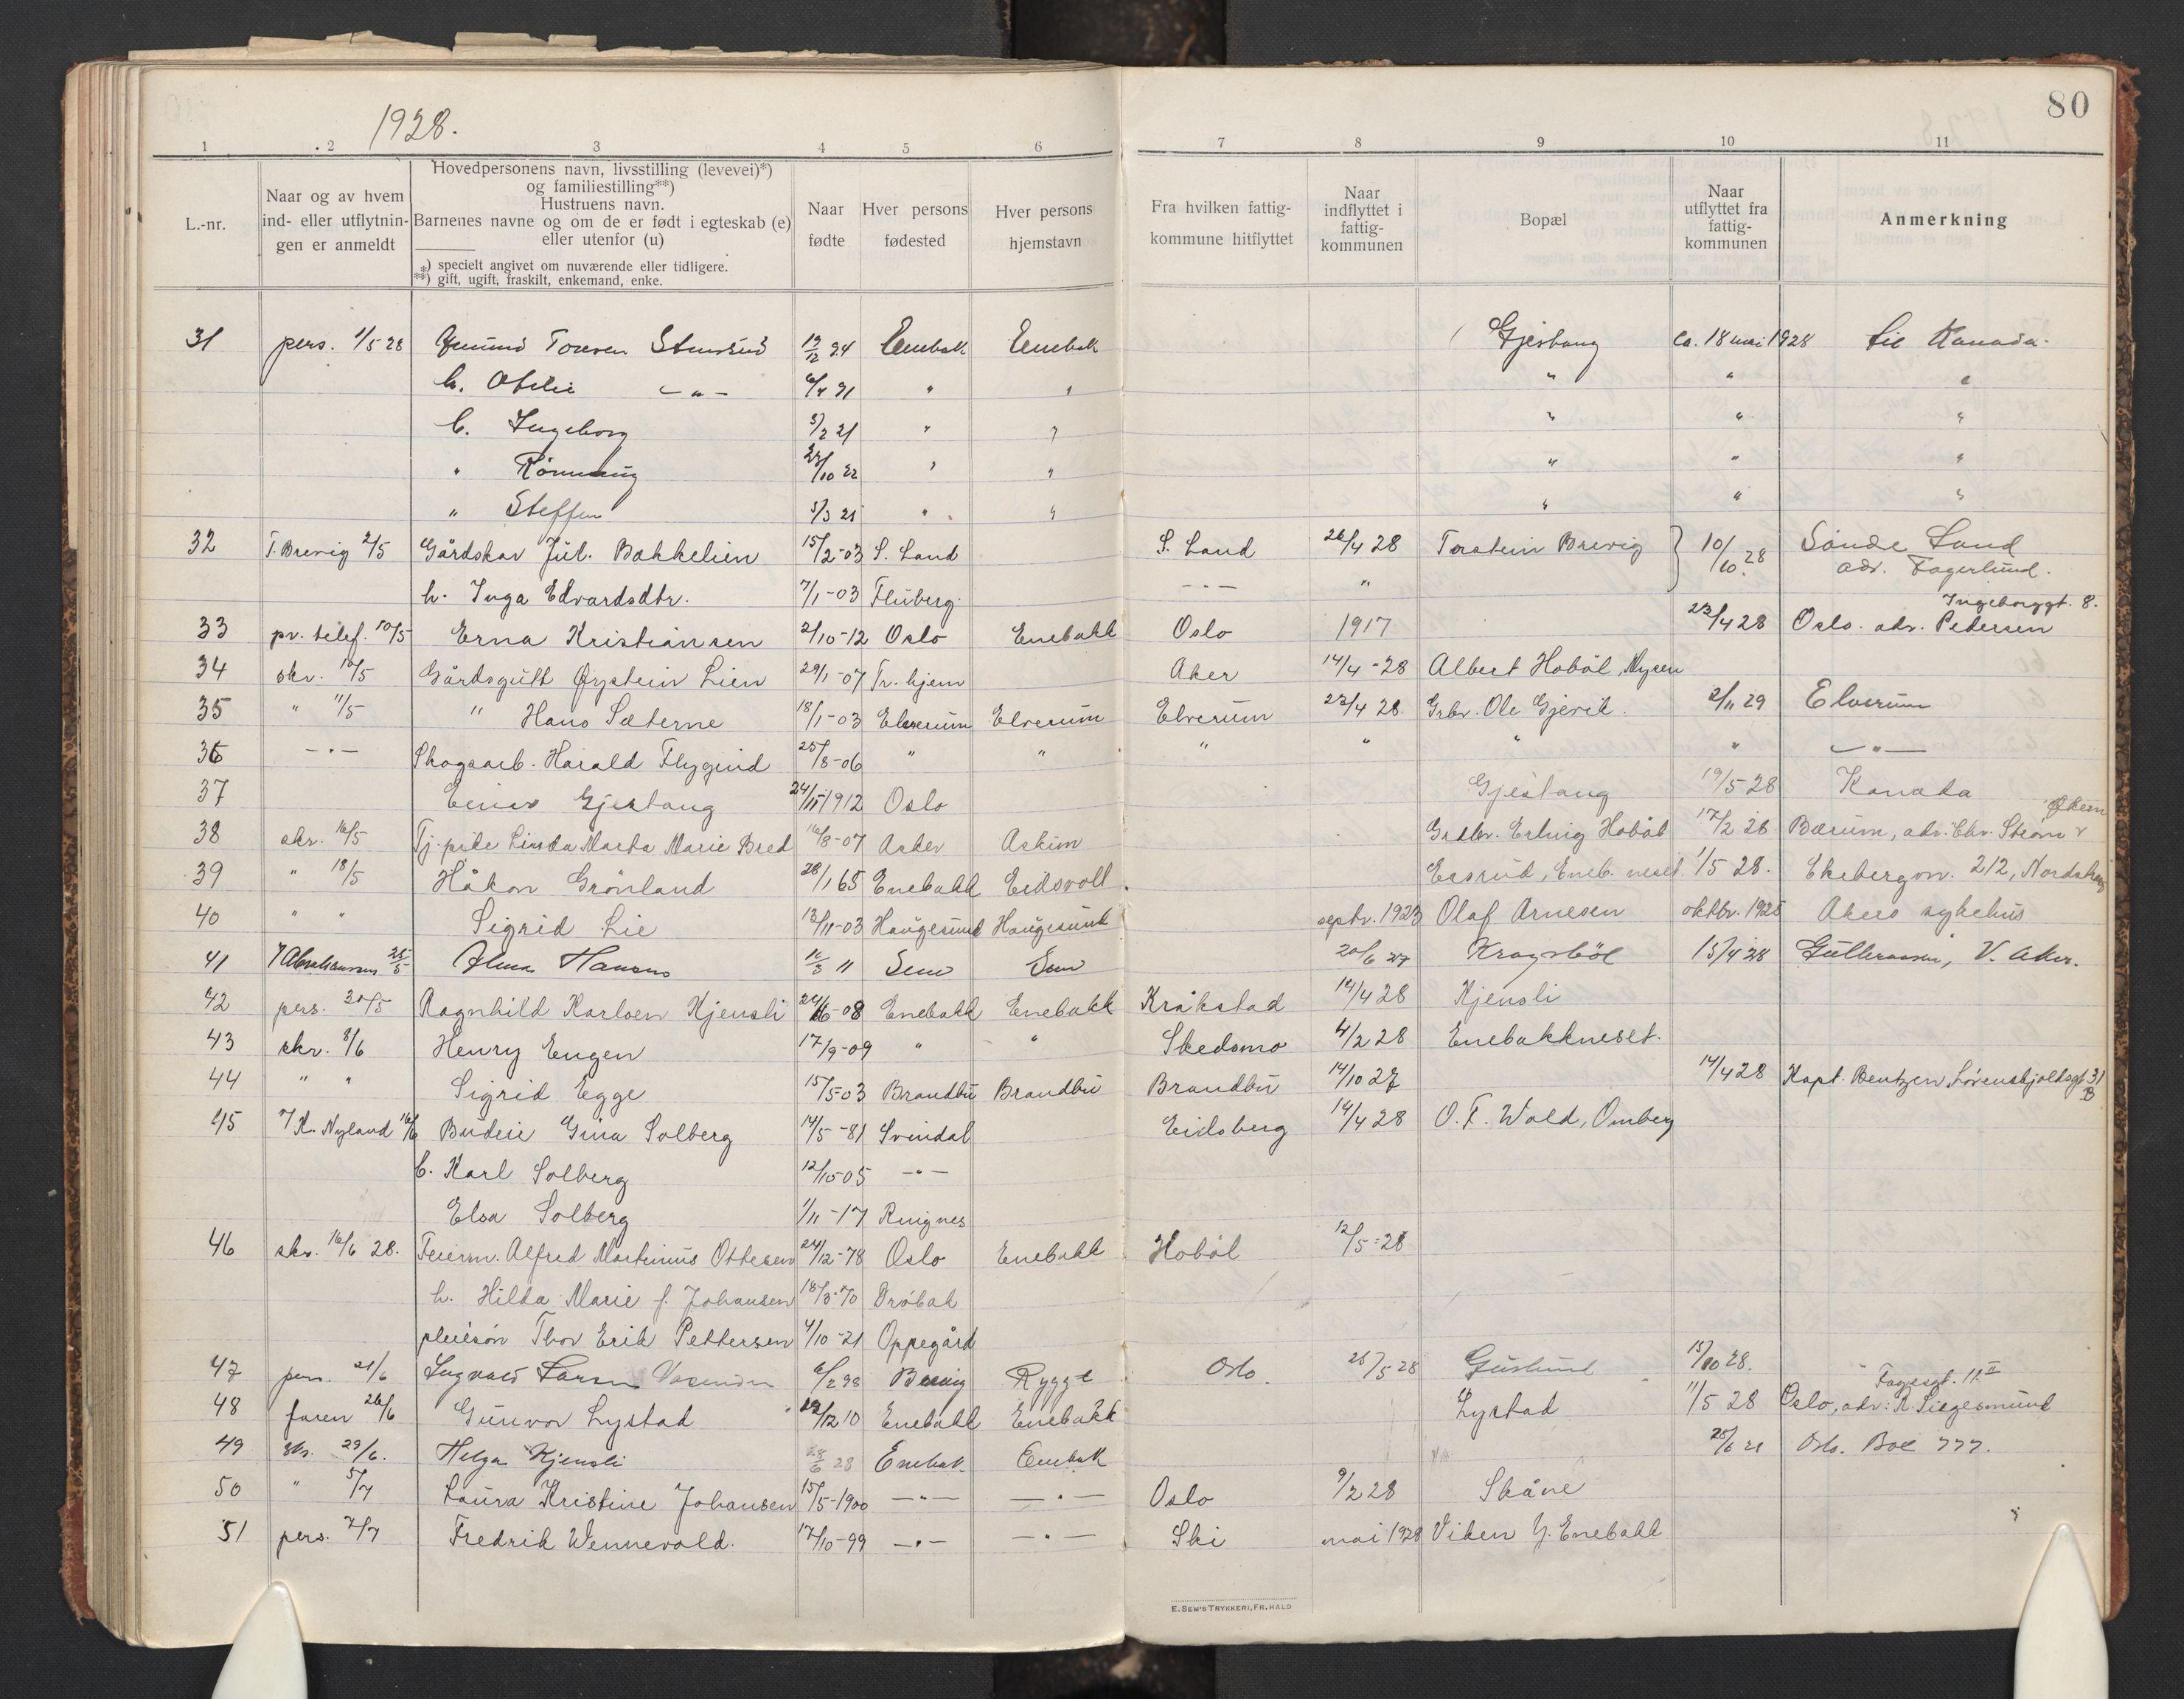 80
1928.
1 2 3 4 5 6 7 8 9 10 11
L.-nr.
Naar og av hvem
ind- eller utflytnin-
gen er anmeldt
Hovedpersonens navn, livsstilling (levevei)*)
og familiestilling**)
Hustruens navn.
Barnenes navne og om de er født i egteskab (e)
eller utenfor (u)
*) specielt angivet om nuværende eller tidligere.
**) gift, ugift, fraskilt, enkemand, enke.
Naar
fødte
Hver persons
fødested
Hver persons
hjemstavn
Fra hvilken fattig-
kommune hitflyttet
Naar
indflyttet i
fattig-
kommunen
Bopæl
Naar
utflyttet fra
fattig-
kommunen
Anmerkning
31 pers. 1/5 28 Stensrud Enebak Enebak Gjestang ca. 18 mai 1928 til Kanada.
h. Otilie — " — " " " " "
b. Ingeborg 3/2 21 " " " " "
" Rönnaug 10 22 " " " " "
" Steffen " " " " "
32 T. Brevig 2/5 Gårdskar Jul. Bakkelien 15/2-03 S. Land S. Land 26/4 28 Torstein Brevig 10/10 28 Söndre Land
adr. Fagerlund.
h. Inga Edvardsdtr. 7/1-03 Fluberg — " — "
Ingeborggt. 8.
33 pr. telef. 10/5 Erna Kristiansen 2/10-12 Oslo Enebakk Oslo 1917 23/4 28 Oslo. adr. Petersen
34 skr. 10/5 Gårdsgutt Øystein Lien 29/1-07 Tr. hjem Aker 14/4-28 Albert Hobøl, Nysen
35 " 11/5 " Hans Sæterne 18/1-03 Elverum Elverum Elverum 23/4 28 Grbr. Ole Gjevik. 2/11 29 Elverum
36 — " — Skogsarb. Harald Flygind 25/8-06 " " " " " " — " —
37 Einar Gjestang 24/11 1912 Oslo Gjestang 19/5-28 Kanada
38 skr. 16/5 Tj. pike Linda Marta Marie Bred 16/8-07 Asker Askim Grdbr. Erling Hobøl 17/2 28 Bærum, adr. Chr. Strøm
39 " 18/5 Håkon Grönland 28/1 65 Enebakk Eidsvoll Eneb. neset. 1/5 28. Ekebergvn. 212, Nordstrand
40 " " Sigrid Lie 13/11-03 Haugesund Haugesund septr. 1923 Olaf Arnesen oktbr. 1925 Akers sykehus
41 Abrahamsen 25/5 Hansen 11 Sem Sem 20/6 27 Kragsböl 15/4 28 V. Aker.
42 pers. 30/5 Ragnhild Karlsen Kjensli 24/6-08 Enebakk Enebakk Kråkstad 14/4 28 Kjensli
43 skr. 8/6 Henry Engen 17/9-09 " " Skedsmo 4/2 28 Enebakkneset.
44 " " Sigrid Egge 15/5-03 Brandbu Brandbu Brandbu 14/10 27 14/4 28 Kapt. Bentzen Lövenskjoldsgt 31
B
45 K. Nyland 16/6 Budeie Gina Solberg 14/5-81 Svindal Eidsberg 14/4 28 O. F. Wold, Omberg
b. Karl Solberg 12/10-05 — " —
Elsa Solberg 1/11-17 Ringnes
46 skr. 16/6 28. Feierm. Alfred Martinius Ottesen 24/12-78 Oslo Enebakk Hobøl 12/5-28
h. Hilda Marie f. Johansen 18/3-70 Drøbak
pleiesön Thor Erik Pettersen 4/10-21 Oppegård
47 pers. 21/6 Ingvald Larsen 6/2 98 Rygge Oslo. 25/5 28 15/10 28.
Fagesgt. 11 II
48 faren 26/6 Gunvor Lystad 12 10 Enebakk Enebakk Lystad 11/5 28 Oslo, adr: R. Siegesmund
49 skr. 29/6. Helga Kjensli 28 Enebak Enebak 25/6 28 Oslo. Box 777.
50 " 5/7 Laura Kristine Johansen 15/5-1900 — " — — " — Oslo 9/2 28 Skåne
51 pers. 7/7 Fredrik Wennevold. 17/10-99 — " — — " — Ski mai 1928 Viken Y. Enebakk
E. SEM'S TRYKKERI, FR.HALD